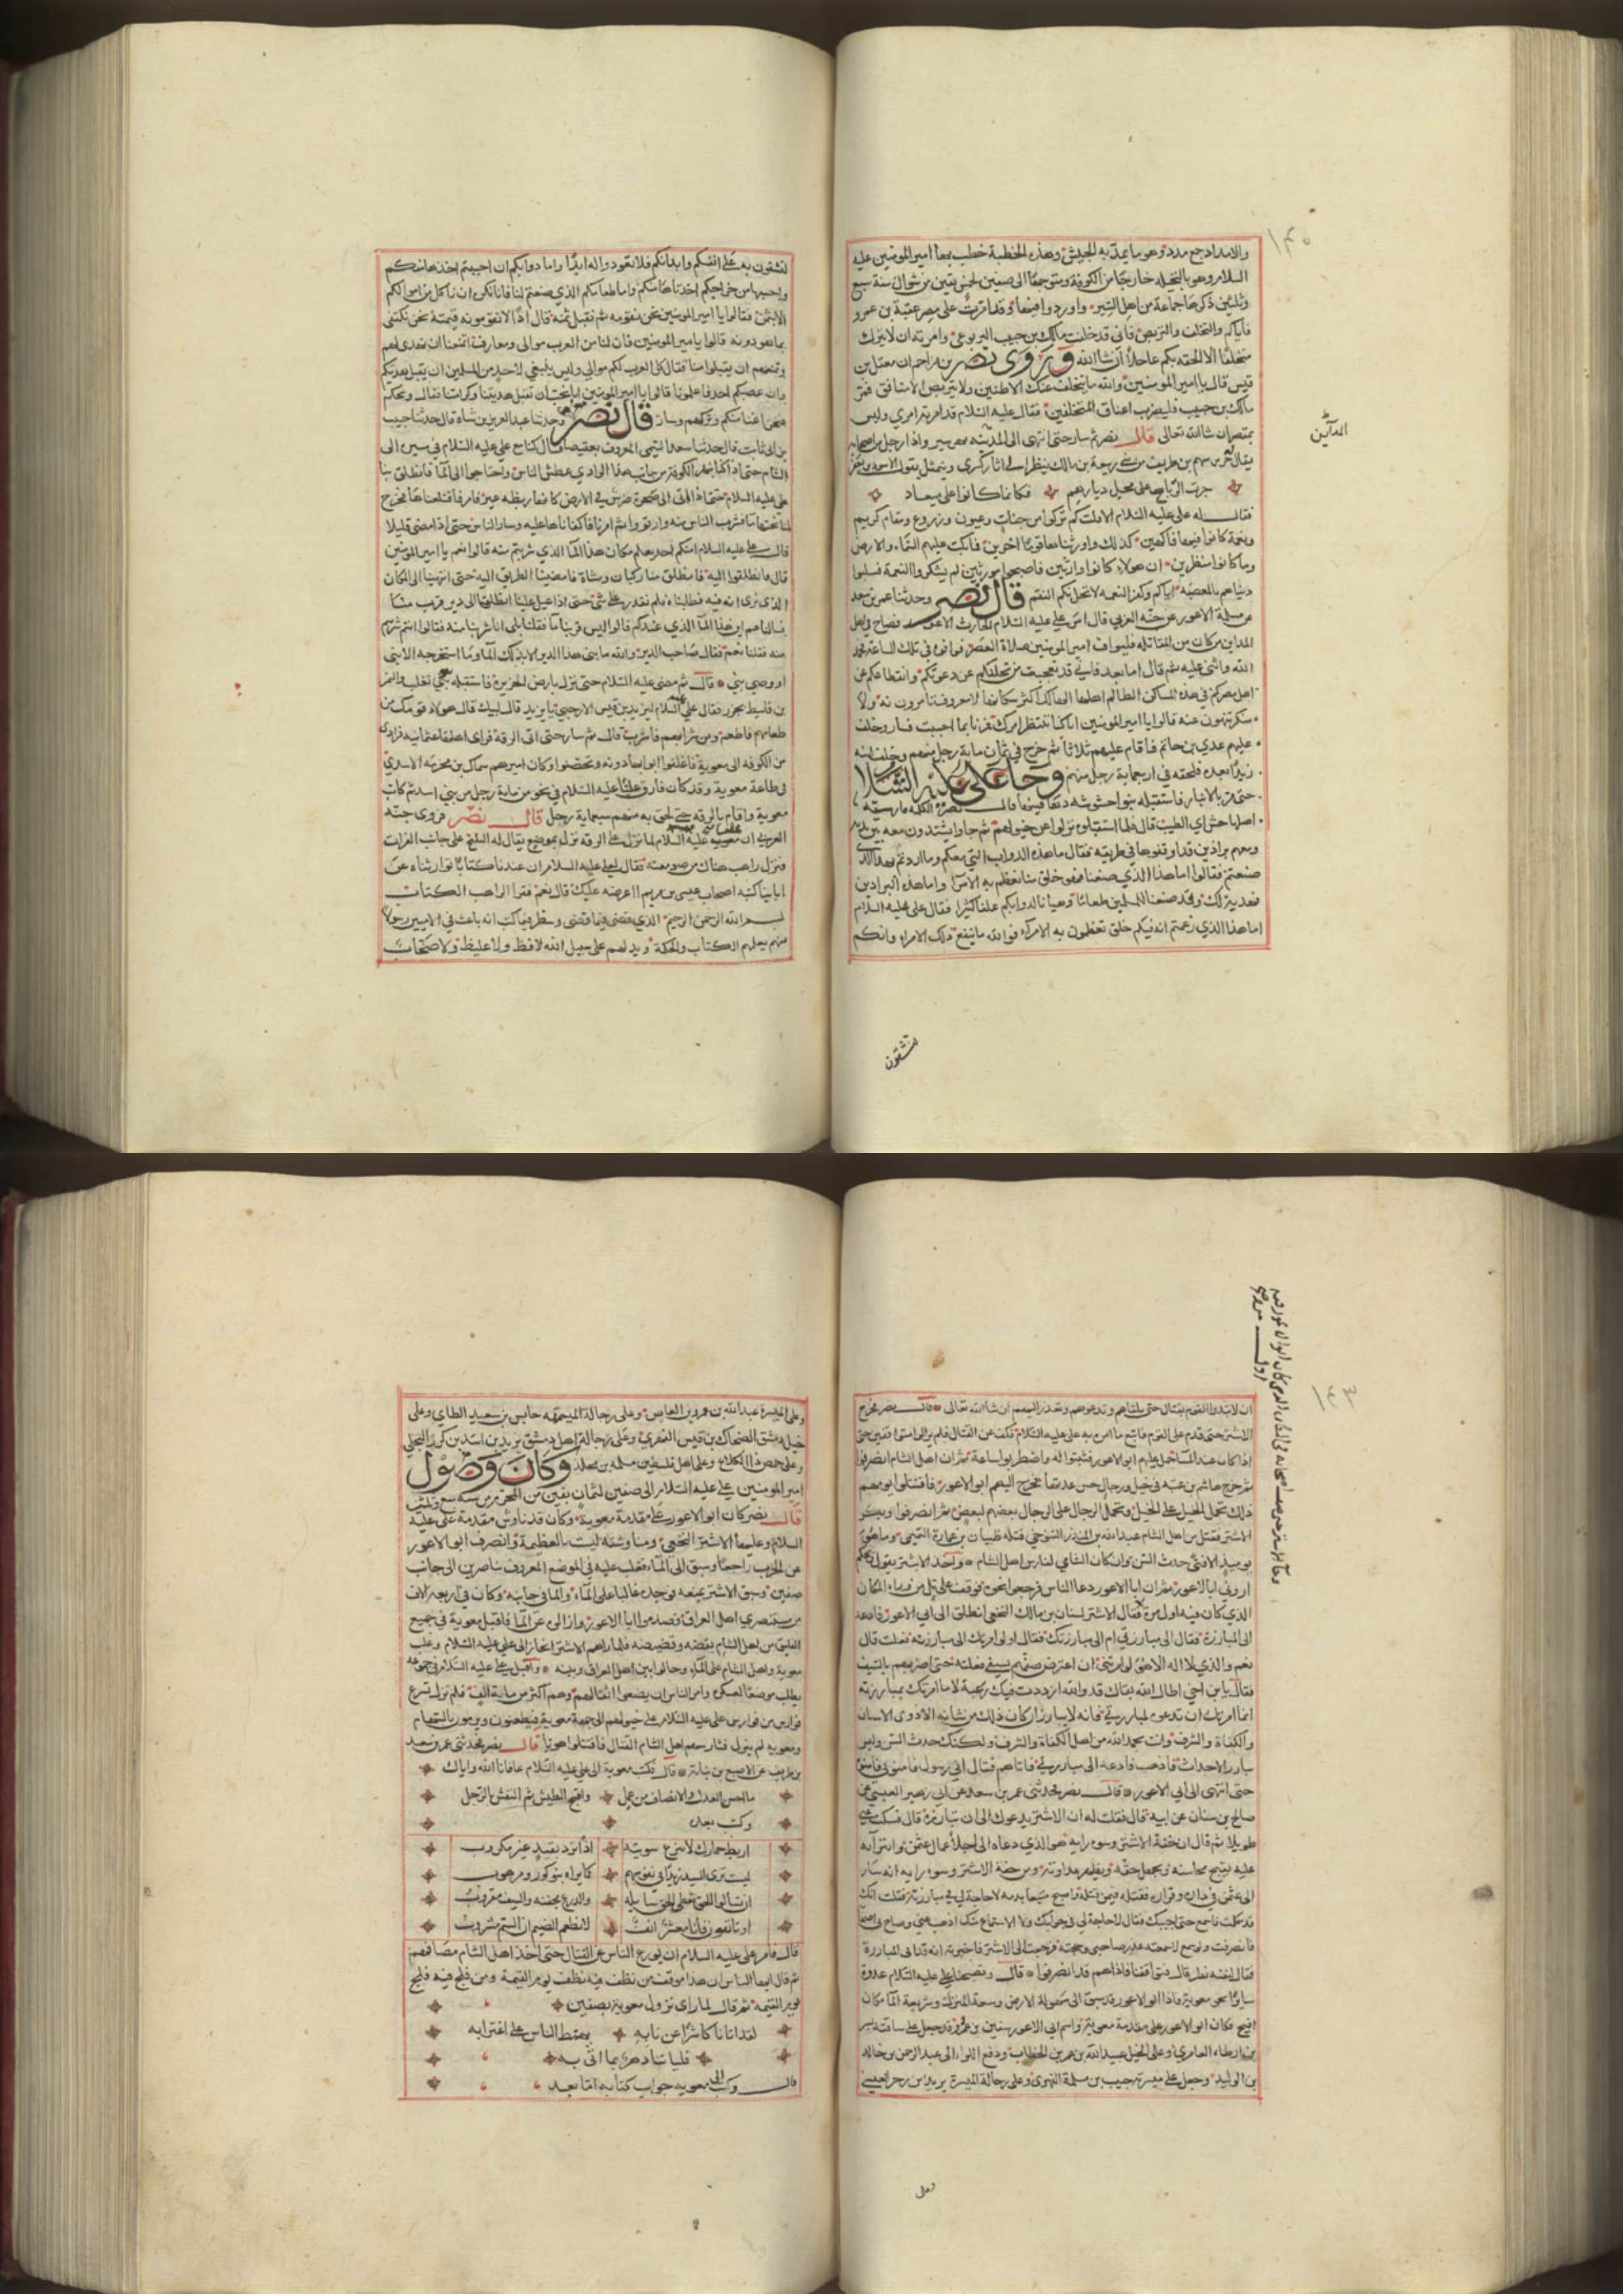 ١٤٠
والامداد جمع مدد وهو ما يمد به الجيش وهذه الخطبة خطب بها امير المومنين عليه
السلام وهو بالنخيلة خارجا من الكوفة ومتوجها الى صفين لخمس بقين من شوال سنة سبع
وثلثين ذكرها جماعة من اهل السير
فاياكم والتخلف والتربص فاني قد خلفت مالك بن حبيب اليربوعي وامرته ان لا يترك
متخلفا الا الحقه بكم عاجلا ان شا الله وروى نصر بن مزاحم ان معقل بن
قيس قال يا امير المومنين والله ما يتخلف عنك الا ظنين ولا يتربص الا منافق فمر
مالك بن حبيب فليضرب اعناق المتخلفين فقال عليه السلام قد امرته امري وليس
بمقصر ان شا الله تعالى قال نصر ثم سار حتى انتهى الى واذا رجل من اصحابه
المداين
جرت الرياح على محل ديارهم فكانما كانوا على ميعاد
فقال له علي عليه السلام الا قلت كم تركوا من جنات وعيون وزروع ومقام كريم
ونعمة كانوا فيها فاكهين كذلك واورثناها قوما اخرين فما بكت عليهم السماء والارض
وما كانوا منظرين ان هولاء كانوا وارثين فاصبحوا مورثين لم يشكروا النعمة فسلبوا
دنياهم بالمعصية اياكم وكفر النعم لا تحل بكم النقم قال نصر وحدثنا عمر بن سعد
عن مسلم الاعور عن حبة العرني قال امر علي عليه السلام الحارث الاعور فصاح في اهل
المداين من كان من المقاتلة فليواف امير المومنين صلاة العصر فوافوه في تلك الساعة فحمد
الله واثنى عليه ثم قال اما بعد فاني قد تعجبت من تخلفكم عن دعوتكم وانقطاعكم عن
اهل مصركم في هذه المساكن الظالم اهلها الهالك اكثر سكانها لا معروف تامرون به ولا
منكر تنهون عنه قالوا يا امير المومنين انا كنا ننتظر امرك فمرنا بما احببت فسار وخلف
عليهم عدي بن حاتم فاقام عليهم ثلاثا ثم خرج في ثمان ماية رجل منهم وخلف ابنه
زيدا بعده فلحقه في اربعماية رجل منهم وجا علي عليه السلام
حتى مر بالانبار فاستقبله بنو خشنوشك دهاقينها قال نصر الكلمة فارسية
اصلها خش اي الطيب قال فلما استقبلوه نزلوا عن خيولهم ثم جاوا يشتدون معه بين يديه
ومعهم براذين قد اوقفوها في طريقه فقال ما هذه الدواب التي معكم وما اردتم بهذا الذي
صنعتم فقالوا اما هذا الذي صنعنا فهو خلق منا نعظم به الامرا واما هذه البراذين
فهدية لك وقد صنعنا للمسلمين طعاما وهيانا لدوابكم علفا كثيرا فقال علي عليه السلام
اما هذا الذي زعمتم انه فيكم خلق تعظمون به الامرآء فوالله ما ينفع ذلك الامراء وانكم
لتشقون
لتشقون به على انفسكم وابدانكم فلا تعودوا له ابدا واما دوابكم ان احببتم اخذها منكم
واحسبها من خراجكم اخذناها منكم واما طعامكم الذي صنعتم لنا فانا نكره ان ناكل من اموالكم
الا بثمن فقالوا يا امير المومنين نحن نقومه ثم نقبل ثمنه قال اذا لا تقومونه قيمته نحن نكتفي
بما هو دونه قالوا يا مير المومنين فان لنا من العرب موالي ومعارف اتمنعنا ان نهدي لهم
وتمنعهم ان يقبلوا منا فقال كل العرب لكم موالي وليس ينبغي لاحد من المسلمين ان يقبل هديتكم
وان غصبكم احد فاعلمونا قالوا يا امير المومنين انا نحب ان تقبل هديتنا وكرامتنا فقال ويحكم
فنحن اغنا منكم وتركهم وسار قال نصر وحدثنا عبد العزيز بن سياه قال حدثنا حبيب
بن ابي ثابت قال حدثنا سعيد التيمي المعروف بعقيصا قال كنا مع علي عليه السلام في مسيره الى
الشام حتى اذا كنا بظهر الكوفة من جانب هذا الوادي عطش الناس واحتاجوا الى الما فانطلق بنا
علي عليه السلام حتى اتى الى صخرة ضرس في الارض كانها ربضه عنز فامرنا فاقتلعناها فخرج
لنا تحتها ما فشرب الناس منه وارتووا ثم امرنا فاكفاناها عليه وسار الناس حتى اذا مضى قليلا
قال علي عليه السلام امنكم احد يعلم مكان هذا الما الذي شربتم منه قالوا نعم يا امير المومنين
قال فانطلقوا اليه فانطلق منا ركبان ومشاة فاقتصصنا الطريق اليه حتى انتهينا الى المكان
الذي نرى انه فيه فطلبناه فلم نقدر على شي حتى اذا عيل علينا انطلقنا الى دير قريب منا
فسالناهم اين هذا الما الذي عندكم قالوا ليس قربنا ما فقلنا بلى انا شربنا منه فقالوا انتم شربتم
منه فقلنا نعم فقال صاحب الدير والله ما بني هذا الدير الا بذلك الما وما استخرجه الا نبي
او وصي نبي قال ثم مضى عليه السلام حتى نزل بارض الجزيرة فاستقبله بنو تغلب والنمر
بن قاسط بجزر فقال علي عليه السلام ليزيد بن قيس الارحبي يا يزيد قال لبيك قال هولاء قومك من
طعامهم فاطعم ومن شرابهم فاشرب قال ثم سار حتى اتى الرقة
من الكوفة الى معوية فاغلقوا ابوابها دونه وتحصنوا وكان اميرهم سماك بن مخرمة الاسدي
في طاعة معوية وقد كان فارق عليا عليه السلام في نحو من ماية رجل من بني اسد ثم كاتب
معوية واقام بالرقة حتى لحق به منهم سبعماية رجل قال نصر فروى حبة
العرني ان عليه السلام لما نزل على الرقة نزل بموضع يقال له البليخ على جانب الفرات
فنزل راهب هناك من صومعته فقال لعلي عليه السلام ان عندنا كتابا توارثناه عن
ابائينا كتبه اصحاب عيسى بن مريم ااعرضه عليك قال نعم فقرا الراهب الكتاب
بسم الله الرحمن الرحيم الذي قضى فيما قضى وسطر فيما كتب انه باعث في الاميين رسولا
منهم يعلمهم الكتاب والحكمة ويدلهم على سبيل الله لا فظ ولا غليظ ولا صخاب
١٤٣
ان لا تبدوا القوم بقتال حتى تلقاهم وتدعوهم وتعذر اليهم ان شا الله تعالى قال نصر فخرج
الاشتر حتى قدم على القوم فاتبع ما امره به علي عليه السلام وكف عن القتال فلم يزالوا متواقفين حتى
اذا كان عند المسا حمل عليهم ابو الاعور فثبتوا له واضطربوا ساعة ثم ان اهل الشام انصرفوا
ثم خرج هاشم بن عتبه في خيل ورجال حسن عدتها فخرج اليهم ابو الاعور فاقتتلوا يومهم
ذلك تحمل الخيل على الخيل وتحمل الرجال على الرجال بعضهم لبعض ثم انصرفوا وبكر
الاشتر فقتل من اهل الشام عبد الله بن المنذر التنوخي قتله ظبيان بن عمارة التميمي وما هو
يوميذ الا فتى حدث السن وان كان الشامي لفارس اهل الشام واخذ الاشتر يقول ويحكم
اروني ابا الاعور ثم ان ابا الاعور دعا الناس فرجعوا نحوه فوقف على تل من وراء المكان
الذي كان فيه اول مرة فقال الاشتر لسنان بن مالك النخعي انطلق الى ابي الاعور فادعه
الى المبارزة فقال الى مبارزتي ام الى مبارزتك فقال اولو امرتك الى مبارزته فعلت قال
نعم والذي لا اله الا هو لو امرتني ان اعترض صفهم بسيفي فعلته حتى اضربهم بالسيف
فقال يا بن اخي اطال الله بقاك قد والله ازددت فيك رغبة لا ما امرتك بمبارزته
انما امرتك ان تدعوه لمبارزتي فانه لا يبارز ان كان ذلك من شانه الا ذوي الاسنان
والكفاة والشرف وانت بحمد الله من اهل الكفاة والشرف ولكنك حدث السن وليس
يبارز الاحداث فاذهب فادعه الى مبارزتي فاتاهم فقال اني رسول فامنوني
حتى انتهى الى ابي الاعور قال نصر فحدثني عمر بن سعد عن ابي زهير العبسي عن
صالح بن سنان عن ابيه قال فقلت له ان الاشتر يدعوك الى ان تبارزه قال فسكت
طويلا ثم قال ان خفة الاشتر وسوء رايه هو الذي دعاه الى اجلاء عمال عثمن وافترائه
عليه يقبح محاسنه ويجهل حقه ويظهر عداوته ومن خفة الاشتر وسوء رايه انه سار
الى عثمن في داره وقراره فقتله فيمن قتله واصبح متبعا بدمه لا حاجة لي في مبارزته فقلت انك
قد تكلمت فاسمع حتى اجيبك فقال لا حاجة لي في جوابك ولا الاستماع منك اذهب عني وصاح بي اصحابه
فانصرفت ولو سمع لاسمعته عذر صاحبي وحجته فرجعت الى الاشتر فاخبرته انه قد ابى المبارزة
فقال لنفسه نظر قال فتواقفنا فاذا هم قد انصرفوا قال وصبحنا علي عليه السلام غدوة
سايرا نحو معوية فاذا ابو الاعور قد سبق الى سهولة الارض وسعة المنزل وشريعة الما مكان
افيح وكان ابو الاعور على مقدمة معوية واسم ابي الاعور سفين بن عمرو وقد جعل على ساقته بسر
بن ارطاه العامري وعلى الخيل عبيد الله بن عمر بن الخطاب ودفع اللواء الى عبد الرحمن بن خالد
بن الوليد وجعل على ميمنته حبيب بن مسلمة الفهري وعلى رجالة الميسرة يزيد بن زحر العبسي
وعلى
وعلى الميسرة عبد الله بن عمرو بن العاص وعلى رجالة الميمنه حابس بن سعيد الطاي وعلى
خيل دمشق الضحاك بن قيس الفهري وعلى رجالة اهل دمشق يزيد بن اسد بن كرز البجلي
وعلى حمص ذا الكلاع وعلى اهل فلسطين مسلمه بن مخلد وكان وصول
امير المومنين علي عليه السلام الى صفين لثمان بقين من المحرم من سنه سبع وثلثين
قال نصر كان ابو الاعور على مقدمة معوية وكان قد ناوش مقدمة علي عليه
السلام وعليها الاشتر النخعي مناوشة ليست بالعظيمة وانصرف ابو الاعور
عن الحرب راجعا وسبق الى الماء فغلب عليه في الموضع المعروف بناصرين الى جانب
صفين وسبق الاشتر يتبعه فوجده غالبا على الماء وكان في اربعة الاف
من مستبصري اهل العراق فصدموا ابا الاعور وازالوه عن الما فاقبل معوية في جميع
الفيلق من اهل الشام بقضه وقضيضه فلما راهم الاشتر انحاز الى علي عليه السلام وغلب
معوية واهل الشام على الماء وحالوا بين اهل العراق وبينه واقبل علي عليه السلام في جموعه
يطلب موضعا لعسكره وامر الناس ان يضعوا اثقالهم وهم اكثر من ماية الف فلما نزل تسرع
فوارس من فوارس علي عليه السلام على خيولهم الى جهة معوية يطعنون ويرمون بالسهام
ومعويه لم ينزل فناوشهم اهل الشام القتال فاقتتلوا هويا قال نصر فحدثني عمر بن سعد
بن طريف عن الاصبغ بن نباته قال فكتب معوية الى علي عليه السلام عافانا الله واياك
ما احسن العدل والانصاف من عمل واقبح الطيش ثم النفش في الرجل
وكتب بعده
اربط حمارك لا تنزع سويته اذا يرد بقيد عير مكروب
ليست ترى السيد زيدا في نفوسهم كما يراه بنو كوز ومرهوب
ان تسالوا الحق نعطي الحق سايله والدرع محقبه والسيف مقروب
او تانفون فانا معشر انف لا نطعم الضيم ان السم مشروب
قال فامر علي عليه السلام ان يوزع الناس عن القتال حتى اخذ اهل الشام مصافهم
ثم قال ايها الناس ان هذا موقف من نطف فيه نطف يوم القيمة ومن فلج فيه فلج
يوم القيمة ثم قال لما راى نزول معوية بصفين
لقد اتانا كاشرا عن نابه يهمط الناس على اغترابه
فلياتنا دهر بما اتى به
قال وكتب الى معويه جواب كتابه اما بعد